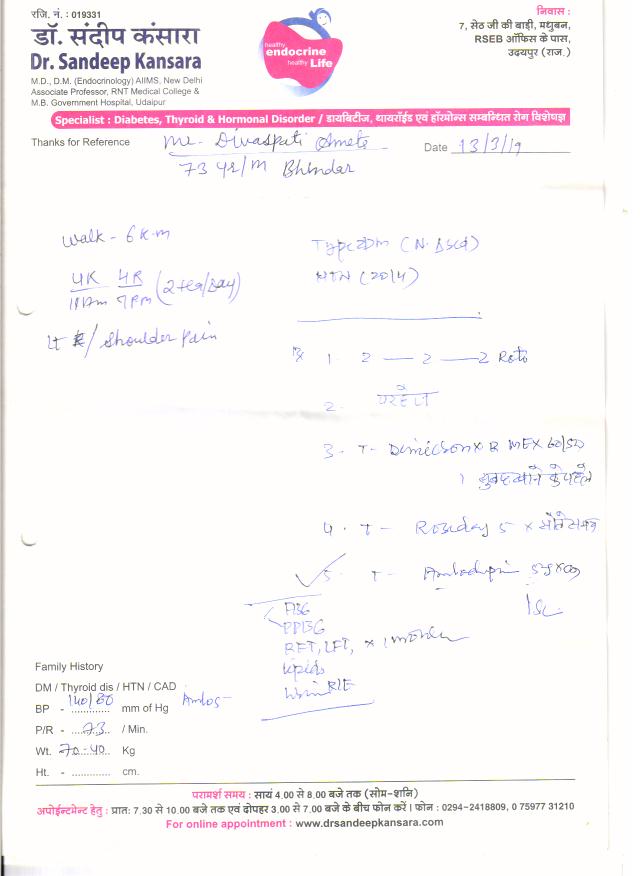 रजि. नं. : 019331
डॉ. संदीप कंसारा
Dr. Sandeep Kansara
M.D., D.M. (Endocrinology) AIIMS, New Delhi
Associate Professor, RNT Medical College &
M.B. Government Hospital, Udaipur
healthy
endocrine
healthy Life
निवास :
7, सेठ जी की बाड़ी, मधुबन,
RSEB ऑफिस के पास,
उदयपुर (राज.)
Specialist : Diabetes, Thyroid & Hormonal Disorder / डायबिटीज, थायरॉईड एवं हॉरमोन्स सम्बन्धित रोग विशेषज्ञ
Thanks for Reference Mr. Divaspati Date 13/3/19
73 yr/M Bhindar
Walk - 6 K.m
Type 2 DM
HTN (2014)
4K 4R (2 tea/day)
11 Am 7 Pm
Shoulder pain
Rx 1. 2 — 2 — 2 Roti
2. परहेज
3. T- 60/500
1 सुबह खाने के पहले
4. T- Rosuday 5 x
5. T- Amlodipin
FBG
PPBG
RFT, LFT, x 1 month
Lipids
Urine R/E
Family History
DM / Thyroid dis / HTN / CAD
BP - 140/80 mm of Hg Amlo5-
P/R - 73 / Min.
Wt. 70.40 Kg
Ht. - ............. cm.
परामर्श समय : सायं 4.00 से 8.00 बजे तक (सोम-शनि)
अपोईन्टमेन्ट हेतु : प्रात: 7.30 से 10.00 बजे तक एवं दोपहर 3.00 से 7.00 बजे के बीच फोन करें । फोन : 0294-2418809, 0 75977 31210
For online appointment : www.drsandeepkansara.com